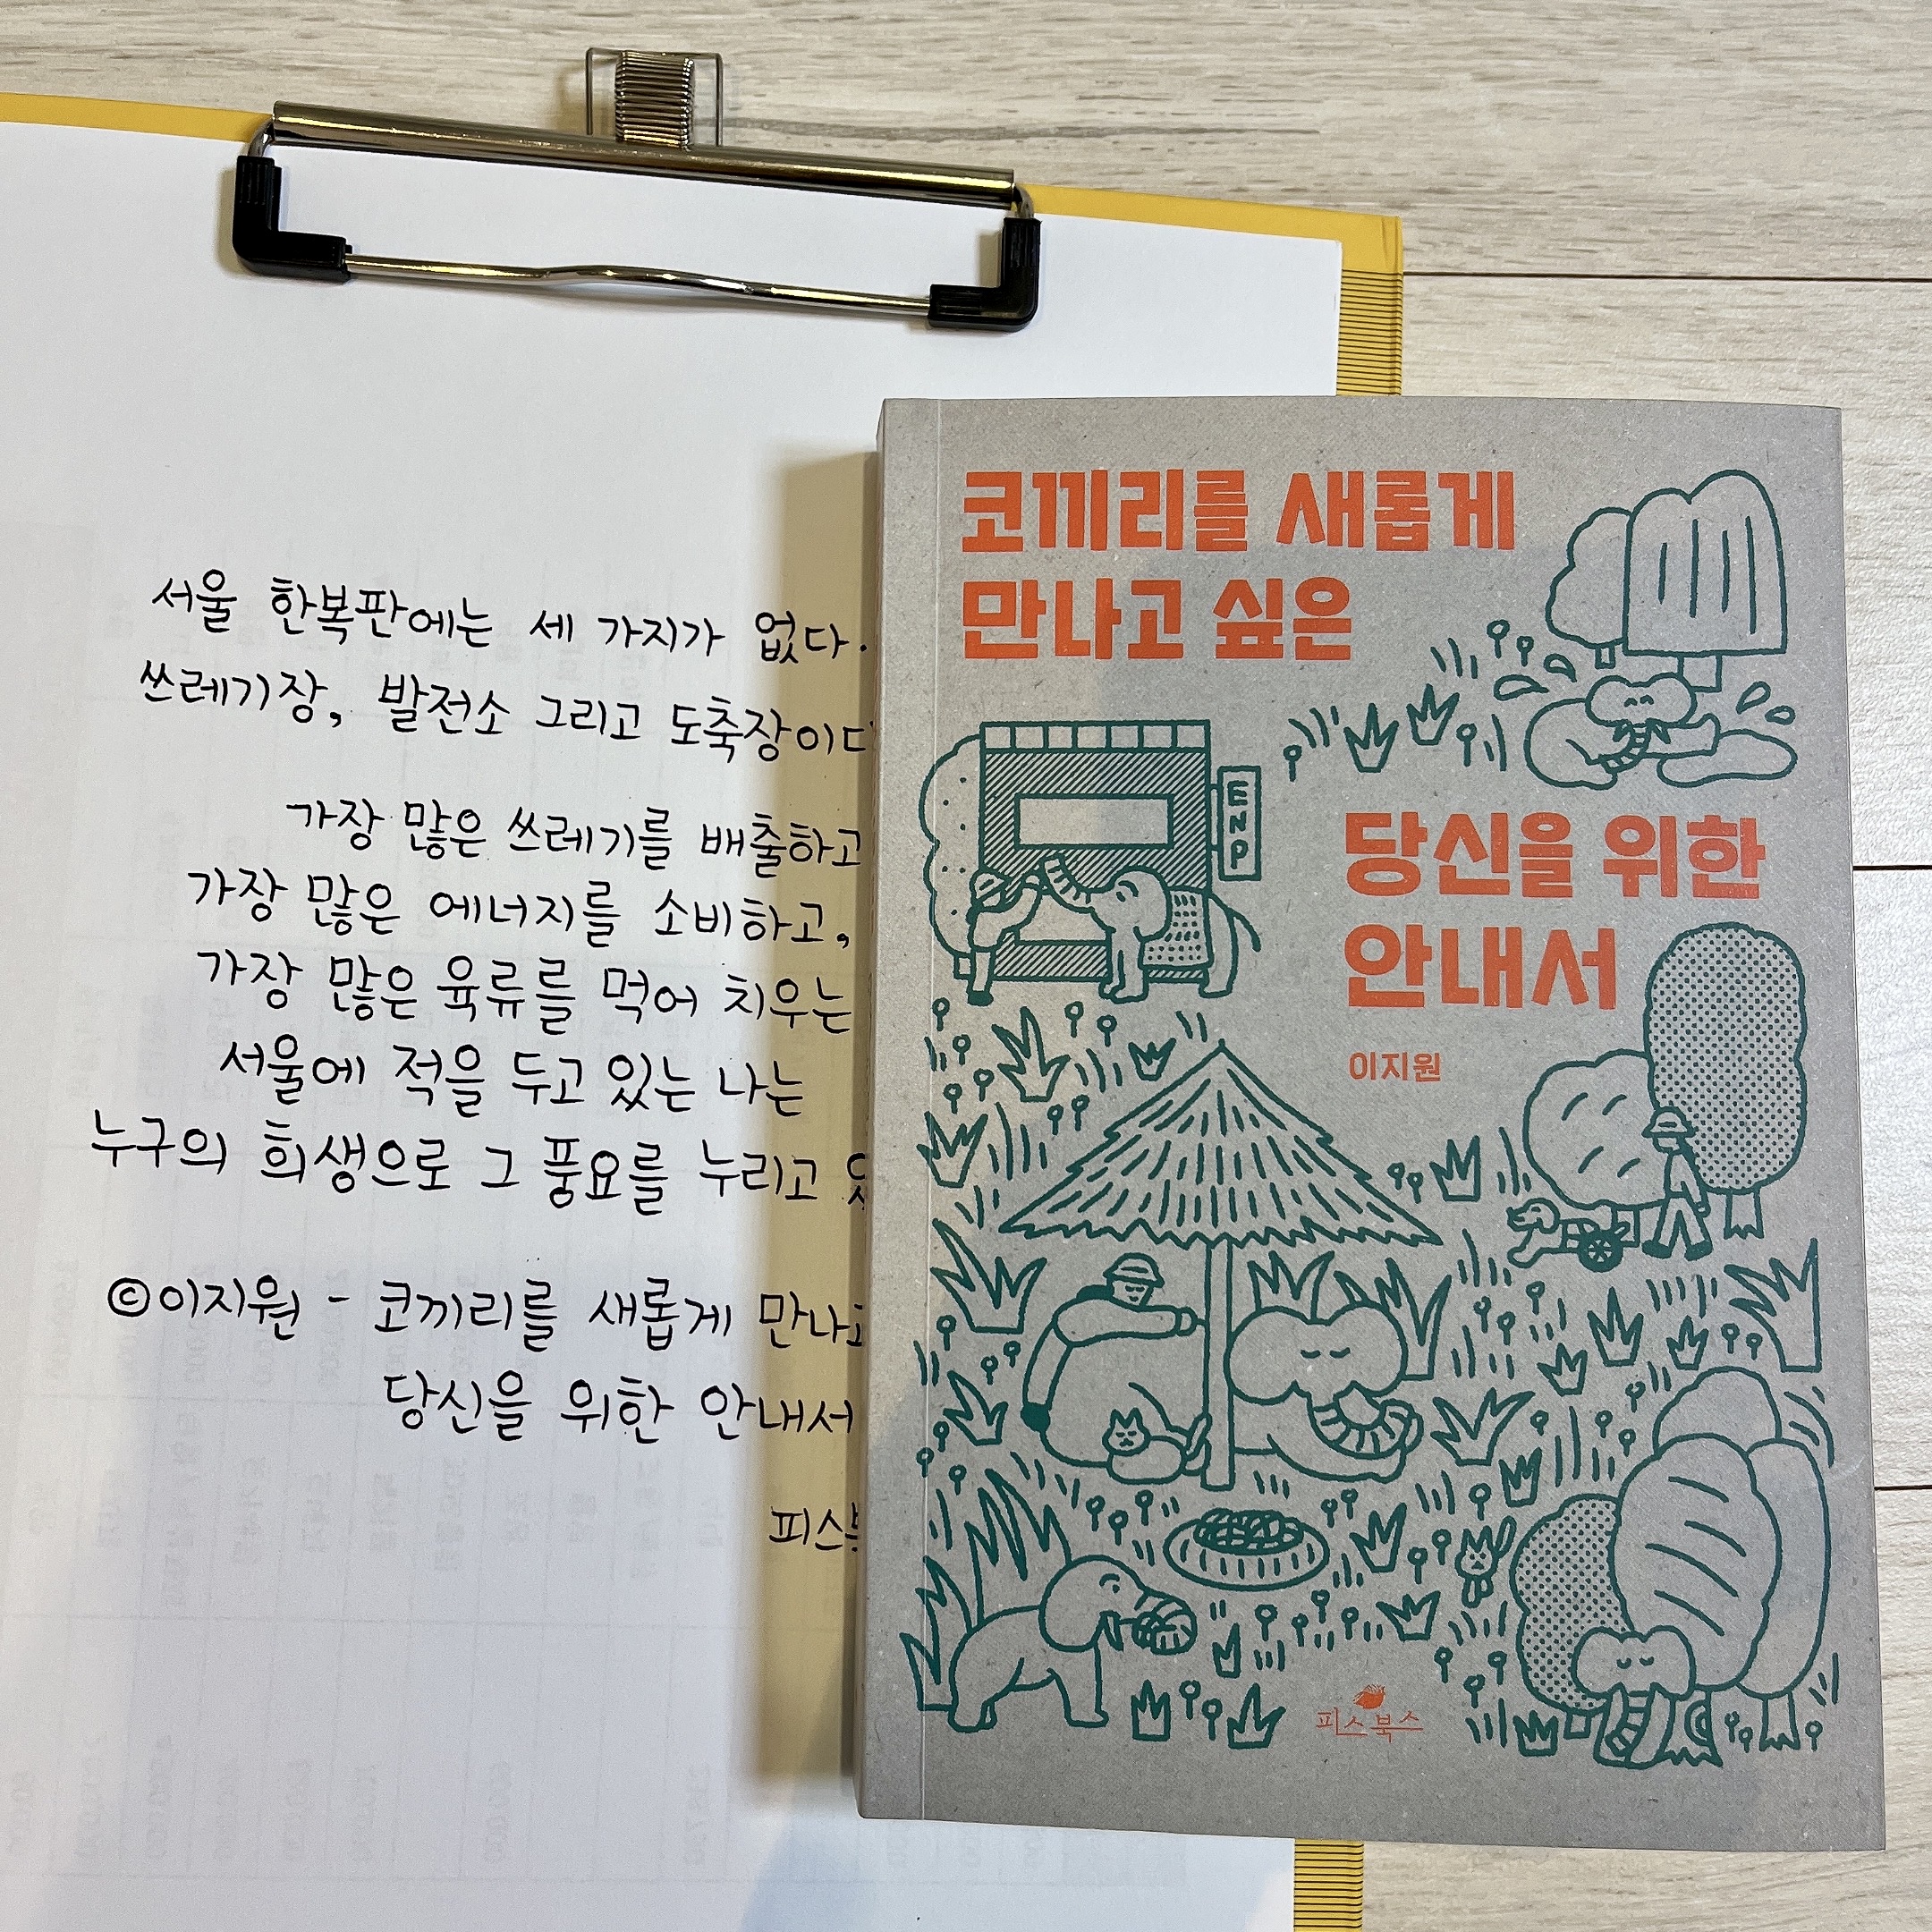 서울 한복판에는 세 가지가 없다.
쓰레기장, 발전소 그리고 도축장이다
가장 많은 쓰레기를 배출하고
가장 많은 에너지를 소비하고,
가장 많은 육류를 먹어 치우는
서울에 적을 두고 있는 나는
누구의 희생으로 그 풍요를 누리고
©이지원 - 코끼리를 새롭게 만나고
당신을 위한 안내서
피스
코끼리를 새롭게
만나고 싶은
ENP
당신을 위한
안내서
이지원
피스북스